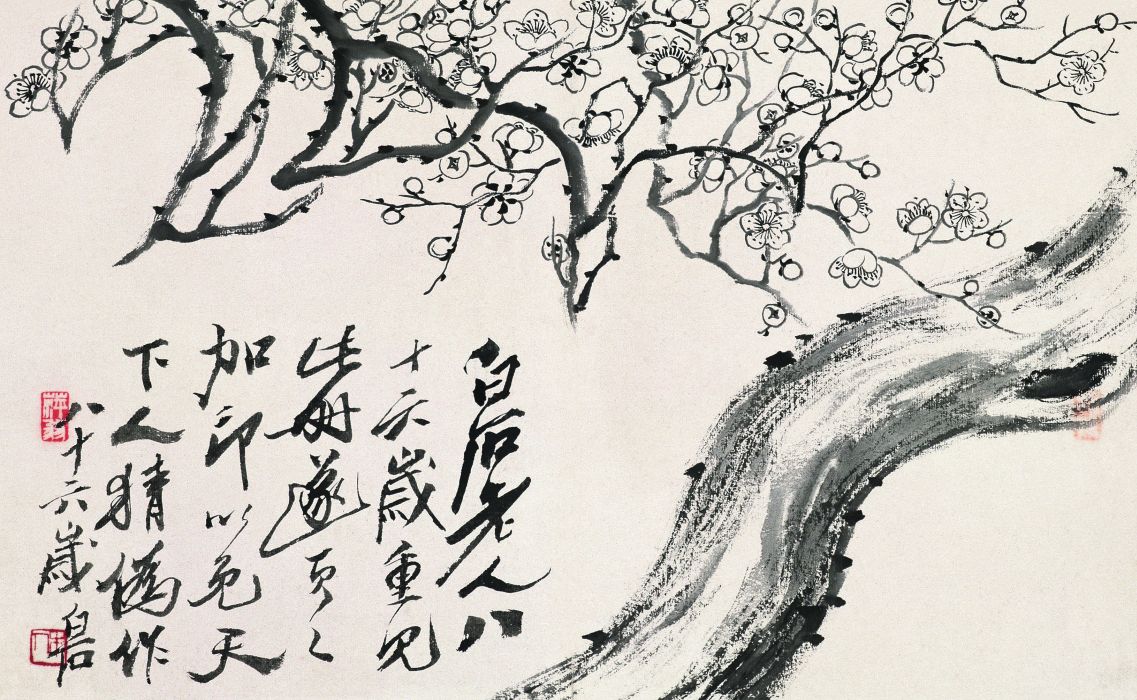 白石老人八
十六歲重見
此册遂頁之
加印以免天
下人猜偽作
八十六歲白石